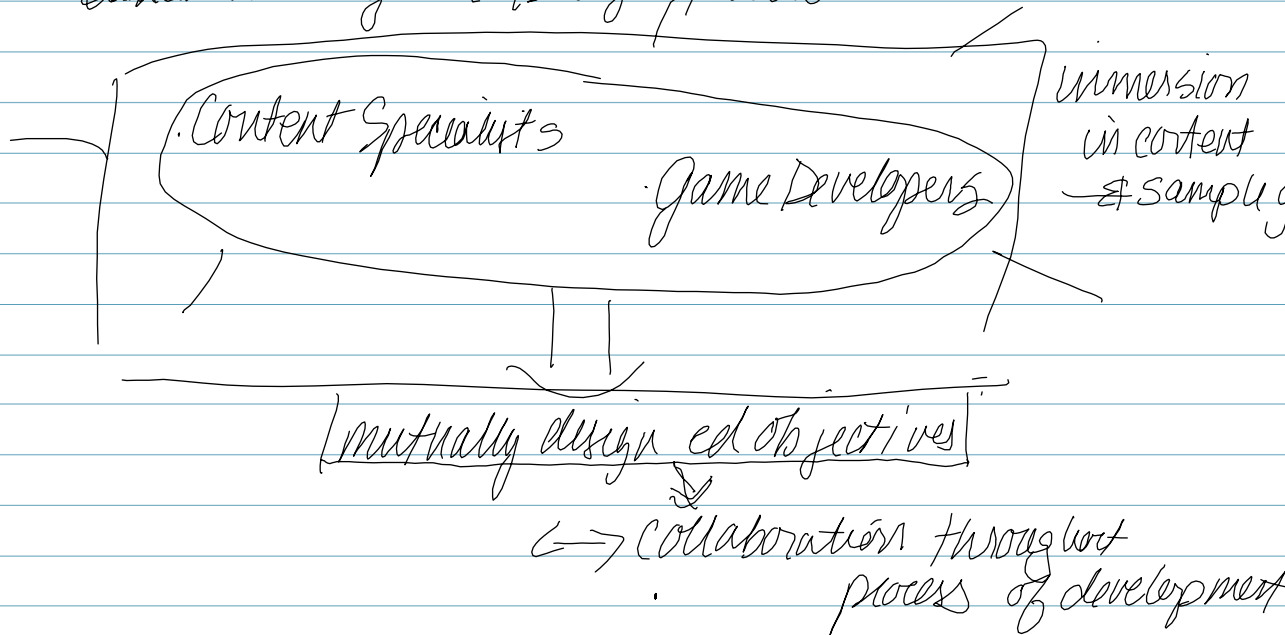 Content Specialists
Game Developers
immersion
in content
& sampl
mutually designed objectives
<-> collaboration throughout
process of development